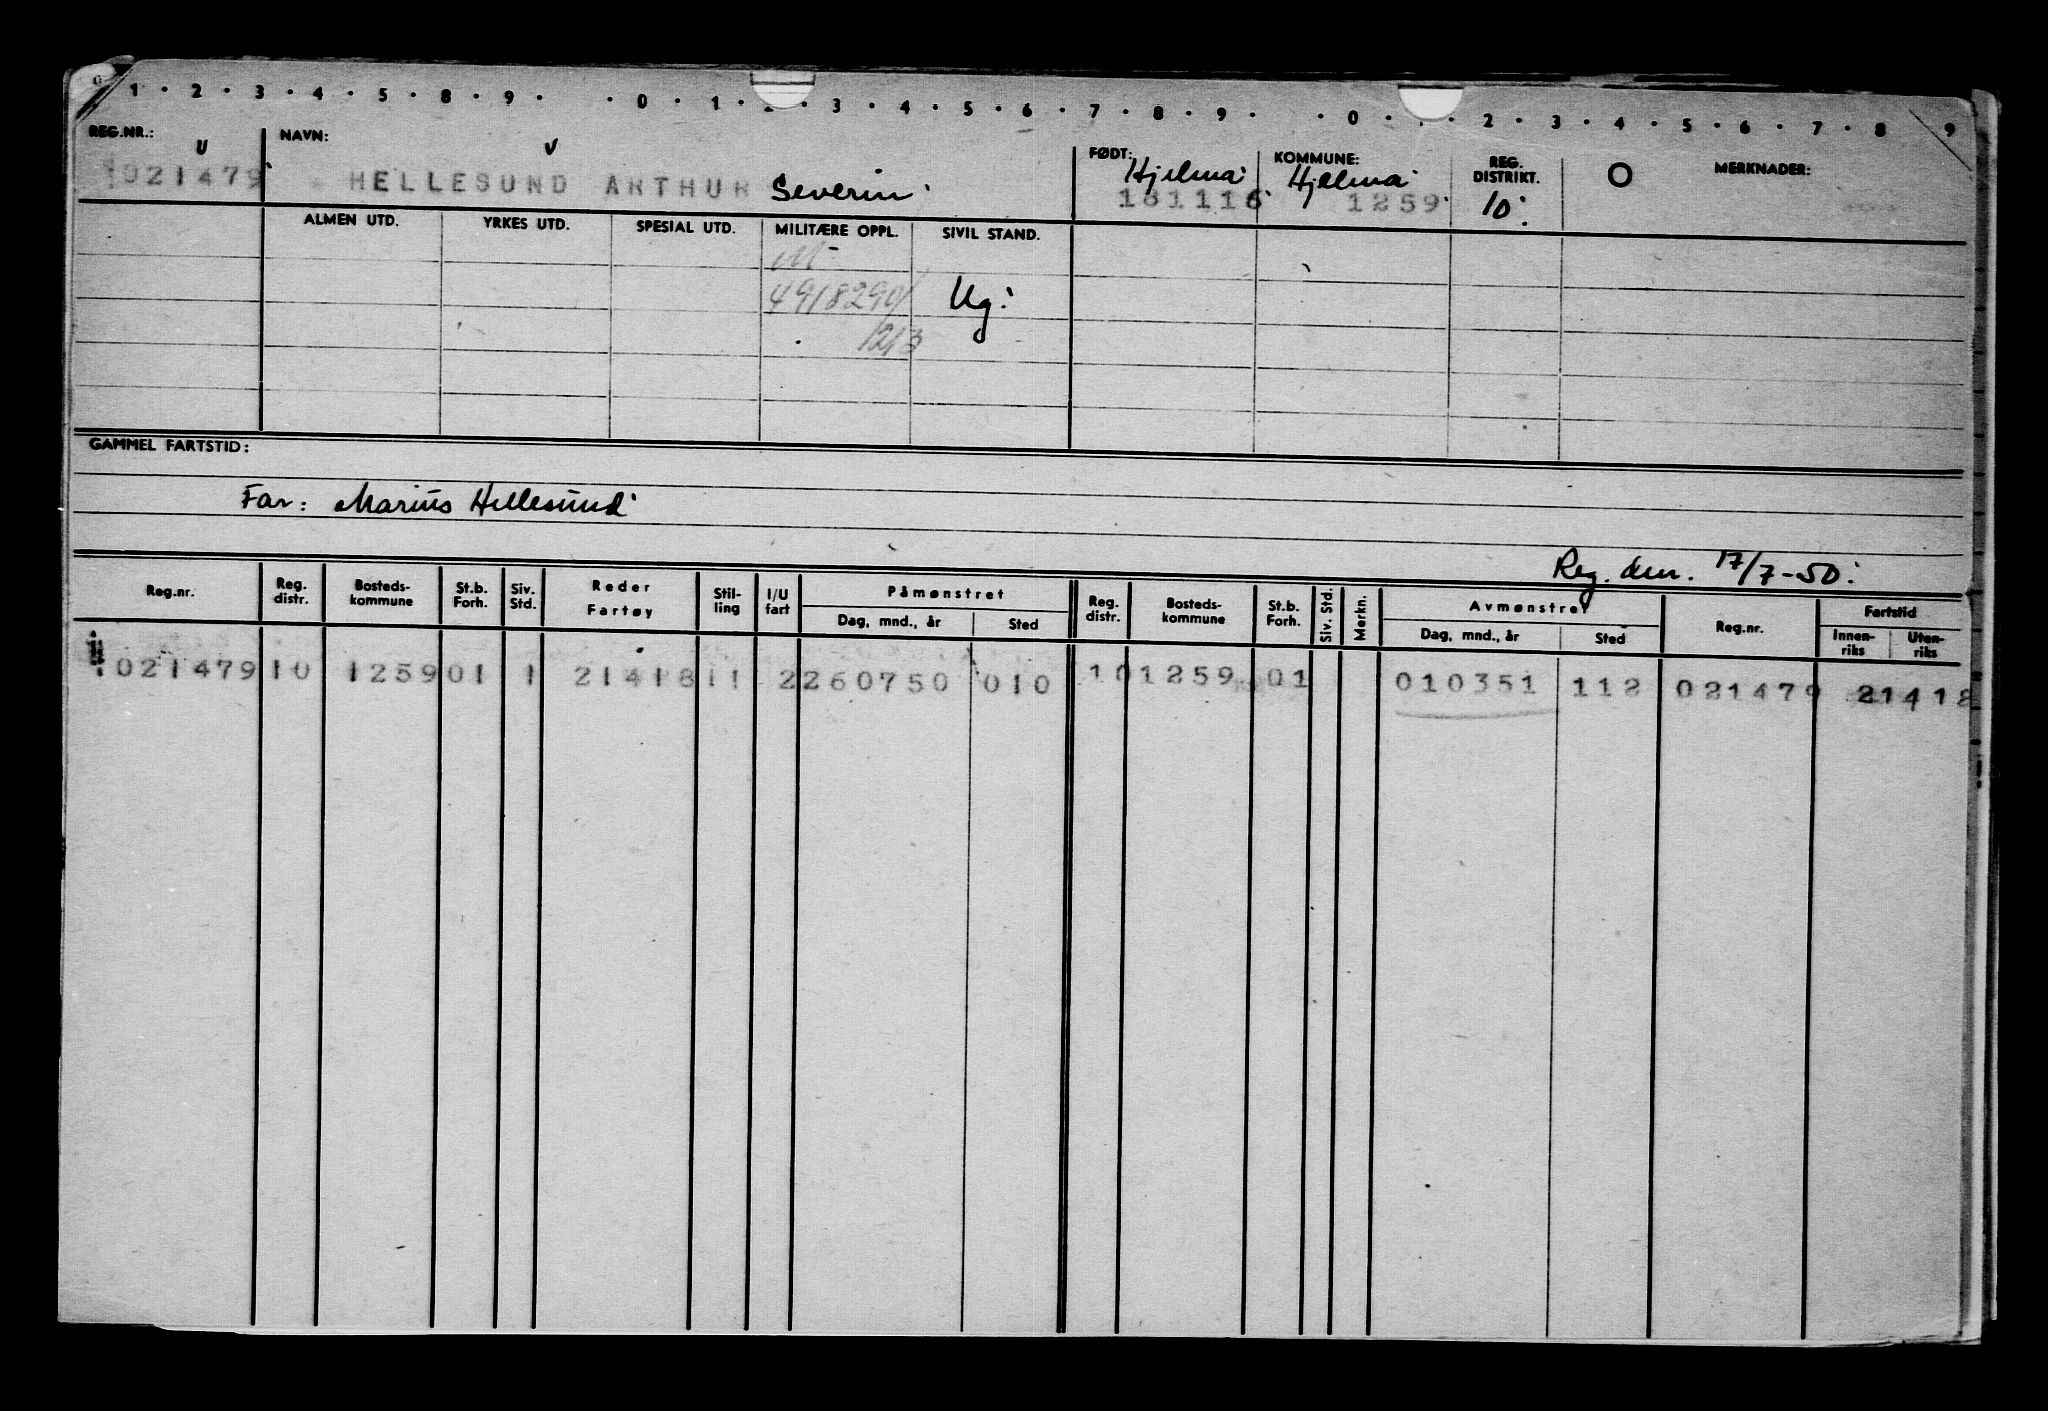 1 · 2 · 3 · 4 · 5 · 8 · 9 · · 0 · 1 · · 3 · 4 · 5 · 6 · 7 · 8 · 9 · · 0 · · 2 · 3 · 4 · 5 · 6 · 7 · 8 9
REG.NR.: NAVN: FØDT: KOMMUNE: REG. DISTRIKT. O MERKNADER:
U V Hjelma Hjelma
021479 HELLESUND ARTHUR Severin 181116 1259 10
ALMEN UTD. YRKES UTD. SPESIAL UTD. MILITÆRE OPPL. SIVIL STAND.
M-
4918290/ Ug.
1213
GAMMEL FARTSTID:
Far: Marius Hellesund
Reg. den. 17/7-50.
Reg.nr. Reg. distr. Bosteds-kommune St.b. Forh. Siv. Std. Reder Fartøy Stil-ling I/U fart Påmønstret Reg. distr. Bosteds-kommune St.b. Forh. Siv. Std. Merkn. Avmønstret Reg.nr. Fartstid
Dag, mnd., år Sted Dag, mnd., år Sted Innen-riks Uten-riks
021479 10 1259 01 1 21418 11 2 260750 010 10 1259 01 010351 112 021479 21418